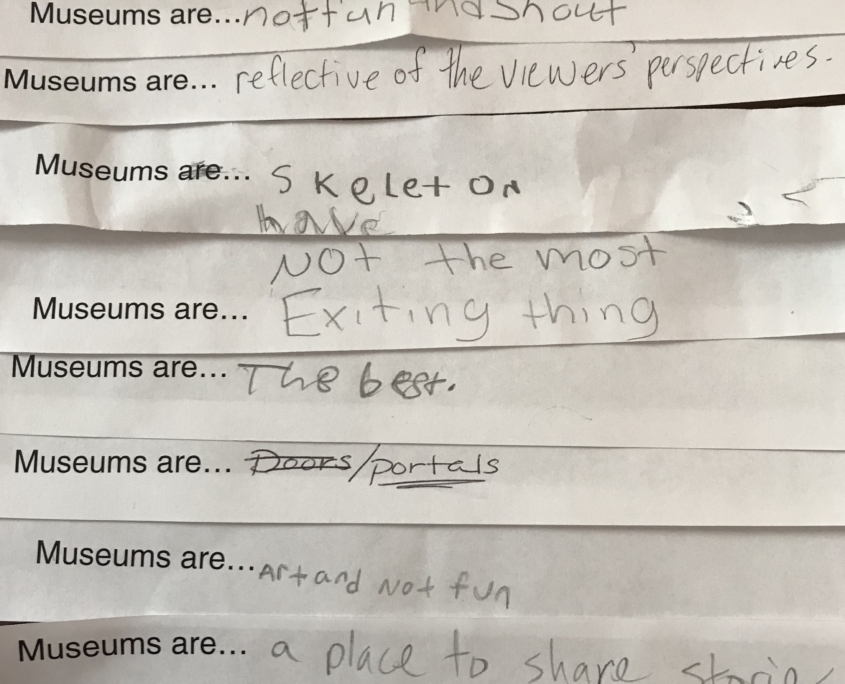 Museums are...not fun and shout
Museums are... reflective of the viewers' perspectives.
Museums are... Skeleton
have
NOT the most
Museums are... Exiting thing
Museums are... The best.
Museums are... Doors/portals
Museums are...Art and Not fun
Museums are... a place to share stories